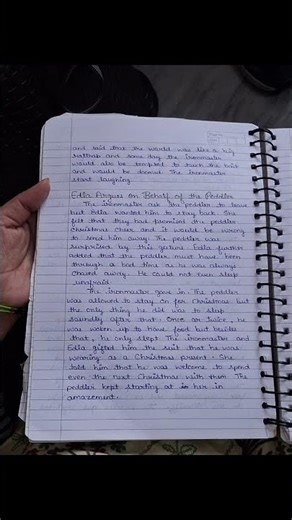 and said that the world was like a big
rattrap and some day the ironmaster
would also be tempted to such the bait
and would be doomed. The ironmaster
start laughing.
Edla Argues on Behalf of the Peddler
The ironmaster ask the peddler to leave
but Edla wanted him to stay back. She
felt that they had promised the peddler
Christmas cheer and it would be wrong
to send him away. The peddler was
surprised by this gesture. Edla further
added that the peddler must have been
through a bad time as he was always
chased away. He could not even sleep
unafraid.
The ironmaster gave in. The peddler
was allowed to stay on for Christmas but
the only thing he did was to sleep
soundly after that. Once or twice, he
was woken up to have food but besides
that, he only slept. The ironmaster and
Edla gifted him the suit that he was
wearing as a Christmas present. She
told him that he was welcome to spend
even the next Christmas with them. The
peddler kept starting at her in
amazement.